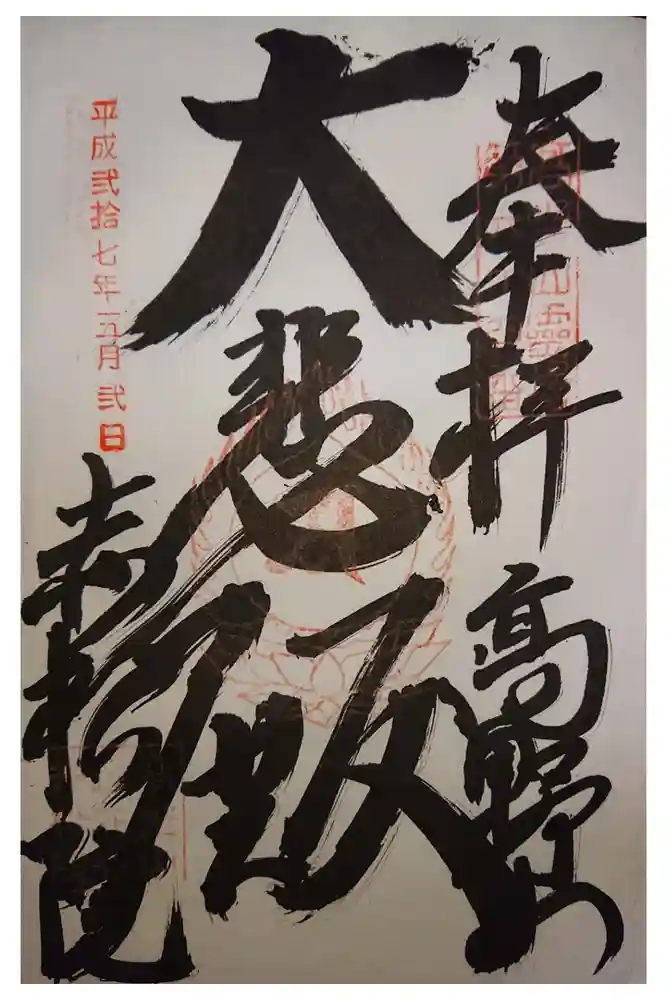 奉拝 高野山
大悲殿
赤松院
平成弐拾七年五月弐日